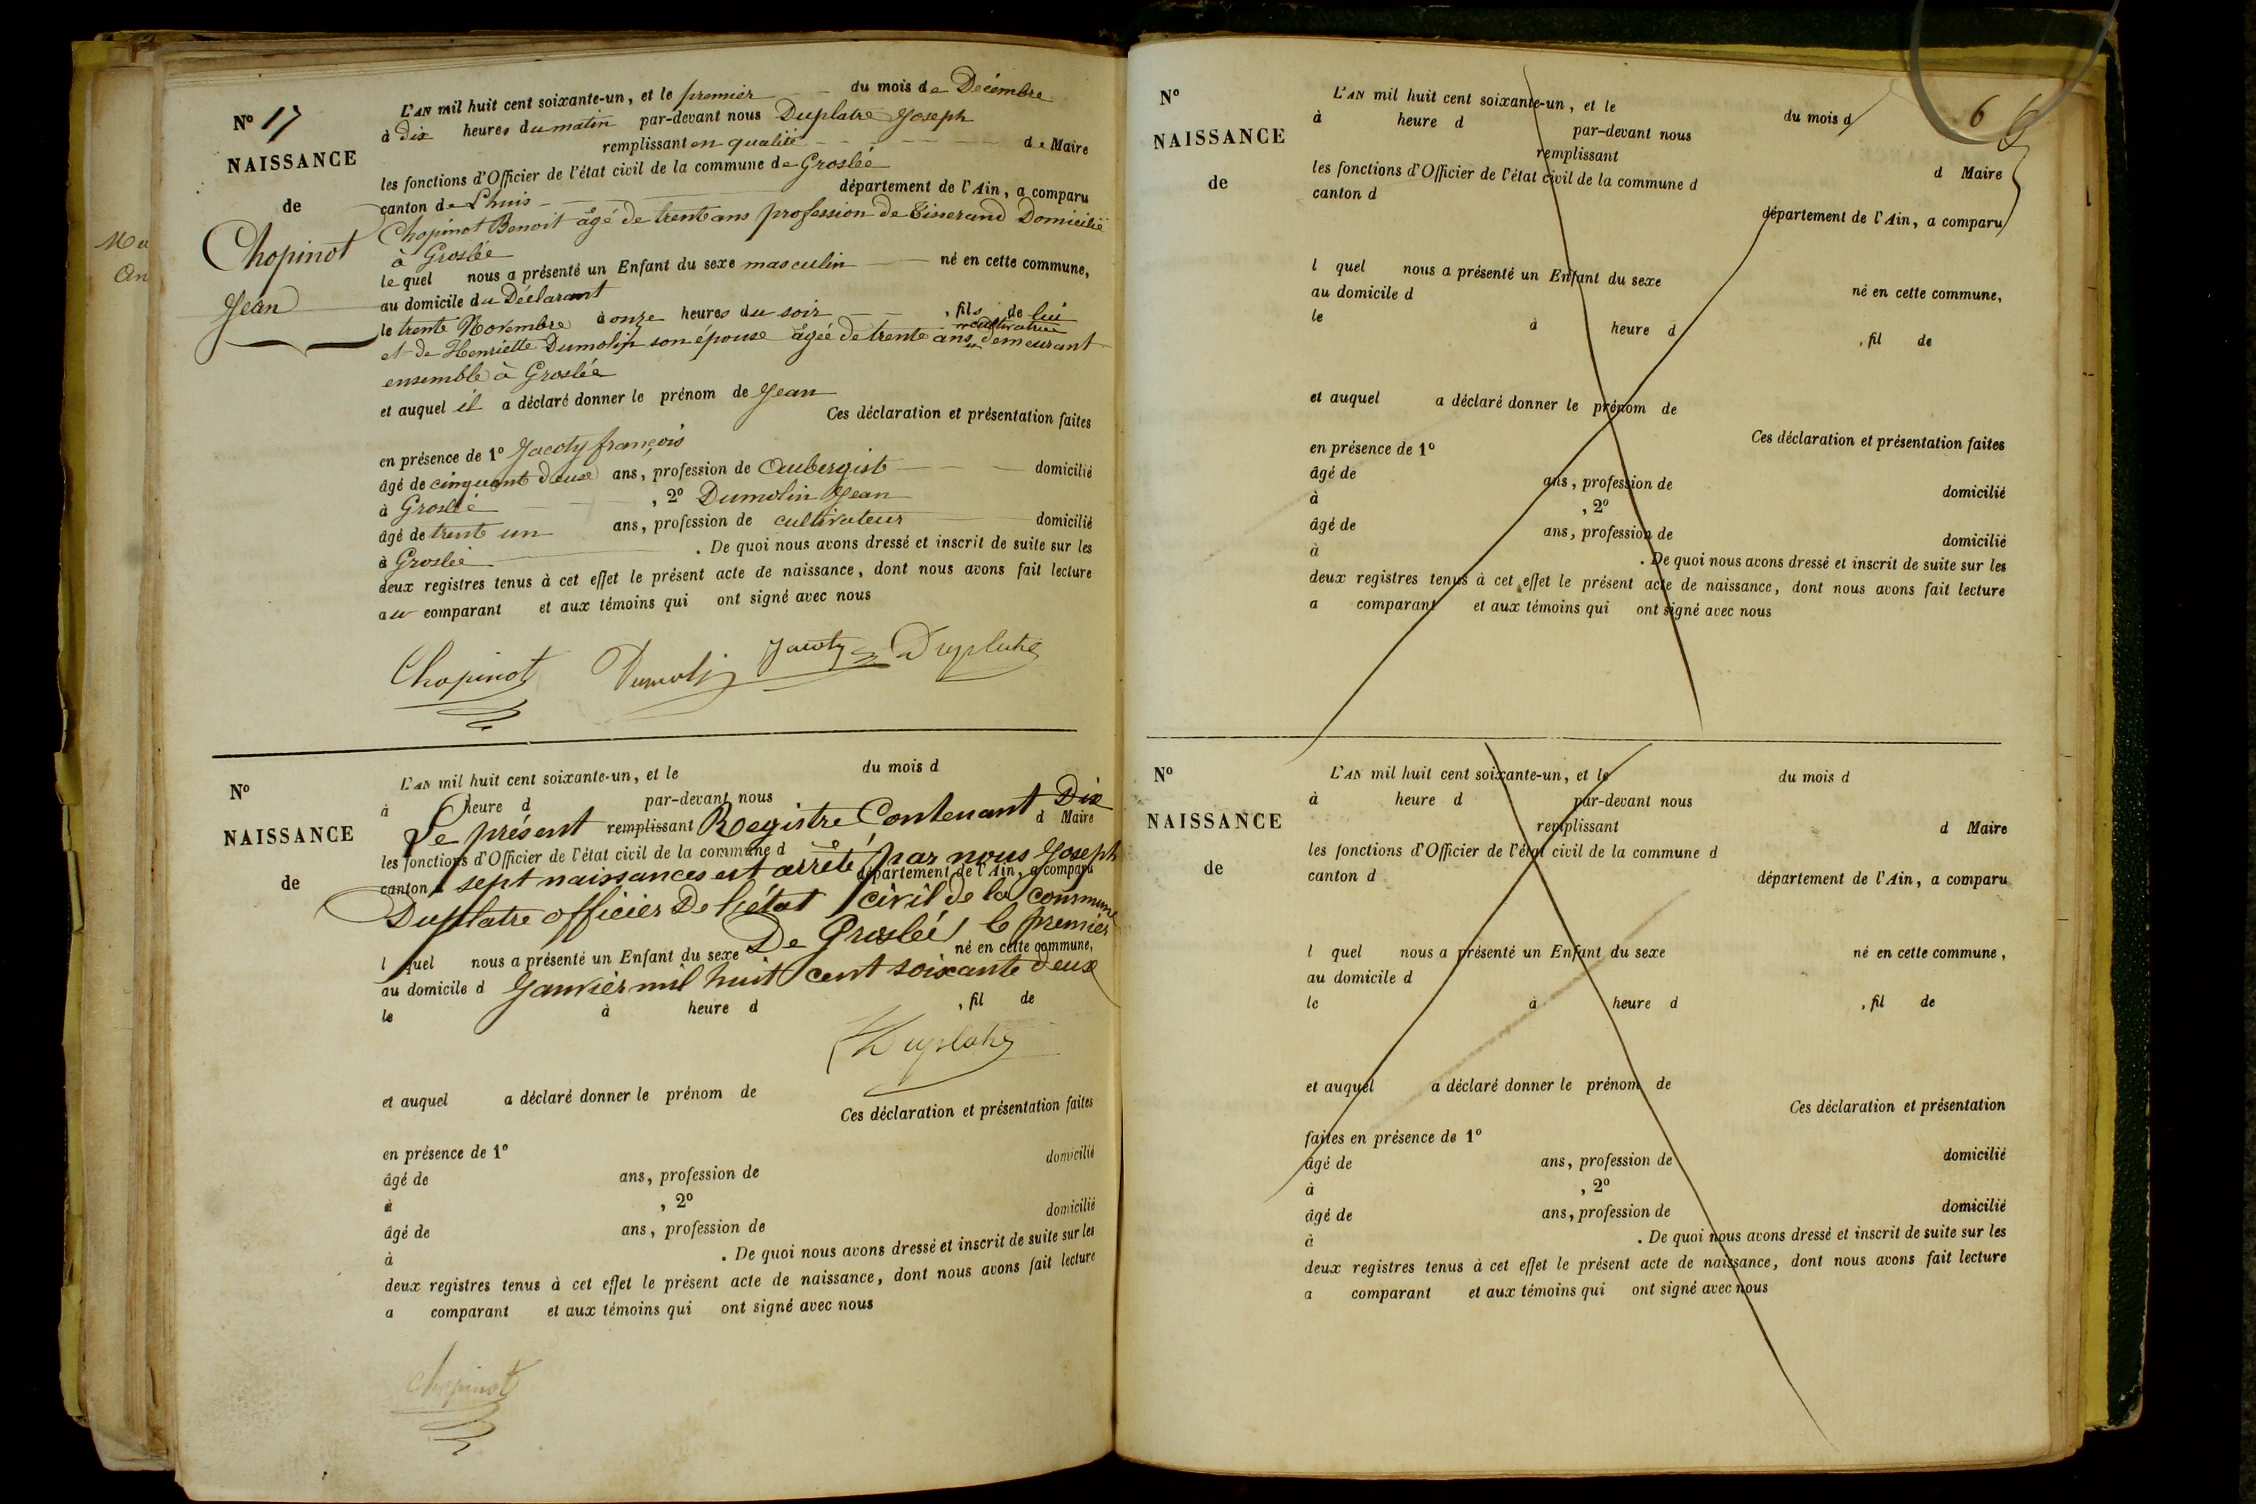 Nº 17
NAISSANCE
de
Chopinot
Jean
L'AN mil huit cent soixante-un, et le premier du mois de Décembre
à dix heures du matin par-devant nous Duplatre Joseph
remplissant en qualité de Maire
les fonctions d'Officier de l'état civil de la commune de Groslée
canton de Lhuis département de l'Ain, a comparu
Chopinot Benoit âgé de trente ans profession de Tisserand Domicilié
à Groslée
lequel nous a présenté un Enfant du sexe masculin né en cette commune,
au domicile du Déclarant
le trente Novembre à onze heures du soir, fils de lui
et de Henriette Dumolin son épouse âgée de trente ans demeurant
ensemble à Groslée
et auquel il a déclaré donner le prénom de Jean
Ces déclaration et présentation faites
en présence de 1º Jacoty françois
âgé de cinquant deux ans, profession de Aubergiste domicilié
à Groslée, 2º Dumolin Jean
âgé de trent un ans, profession de cultivateur domicilié
à Groslée. De quoi nous avons dressé et inscrit de suite sur les
deux registres tenus à cet effet le présent acte de naissance, dont nous avons fait lecture
au comparant et aux témoins qui ont signé avec nous
Chopinot Dumolin Jacoty Duplatre
Nº
NAISSANCE
de
L'AN mil huit cent soixante-un, et le du mois d
à heure d par-devant nous
Le présent Registre Contenant Dix
remplissant d Maire
les fonctions d'Officier de l'état civil de la commune d
sept naissances est arrêté par nous Joseph
canton d département de l'Ain, a comparu
Duplatre officier De l'état civil de la commune
De Groslée le premier
l quel nous a présenté un Enfant du sexe né en cette commune,
Janvier mil huit cent soixante deux
au domicile d
le à heure d, fil de
Duplatre
et auquel a déclaré donner le prénom de
Ces déclaration et présentation faites
en présence de 1º
âgé de ans, profession de domicilié
à, 2º
âgé de ans, profession de domicilié
à. De quoi nous avons dressé et inscrit de suite sur les
deux registres tenus à cet effet le présent acte de naissance, dont nous avons fait lecture
a comparant et aux témoins qui ont signé avec nous
Chopinot
6
Nº
NAISSANCE
de
L'AN mil huit cent soixante-un, et le du mois d
à heure d par-devant nous
remplissant d Maire
les fonctions d'Officier de l'état civil de la commune d
canton d département de l'Ain, a comparu
l quel nous a présenté un Enfant du sexe né en cette commune,
au domicile d
le à heure d, fil de
et auquel a déclaré donner le prénom de
Ces déclaration et présentation faites
en présence de 1º
âgé de ans, profession de domicilié
à, 2º
âgé de ans, profession de domicilié
à. De quoi nous avons dressé et inscrit de suite sur les
deux registres tenus à cet effet le présent acte de naissance, dont nous avons fait lecture
a comparant et aux témoins qui ont signé avec nous
Nº
NAISSANCE
de
L'AN mil huit cent soixante-un, et le du mois d
à heure d par-devant nous
remplissant d Maire
les fonctions d'Officier de l'état civil de la commune d
canton d département de l'Ain, a comparu
l quel nous a présenté un Enfant du sexe né en cette commune,
au domicile d
le à heure d, fil de
et auquel a déclaré donner le prénom de
Ces déclaration et présentation
faites en présence de 1º
âgé de ans, profession de domicilié
à, 2º
âgé de ans, profession de domicilié
à. De quoi nous avons dressé et inscrit de suite sur les
deux registres tenus à cet effet le présent acte de naissance, dont nous avons fait lecture
a comparant et aux témoins qui ont signé avec nous